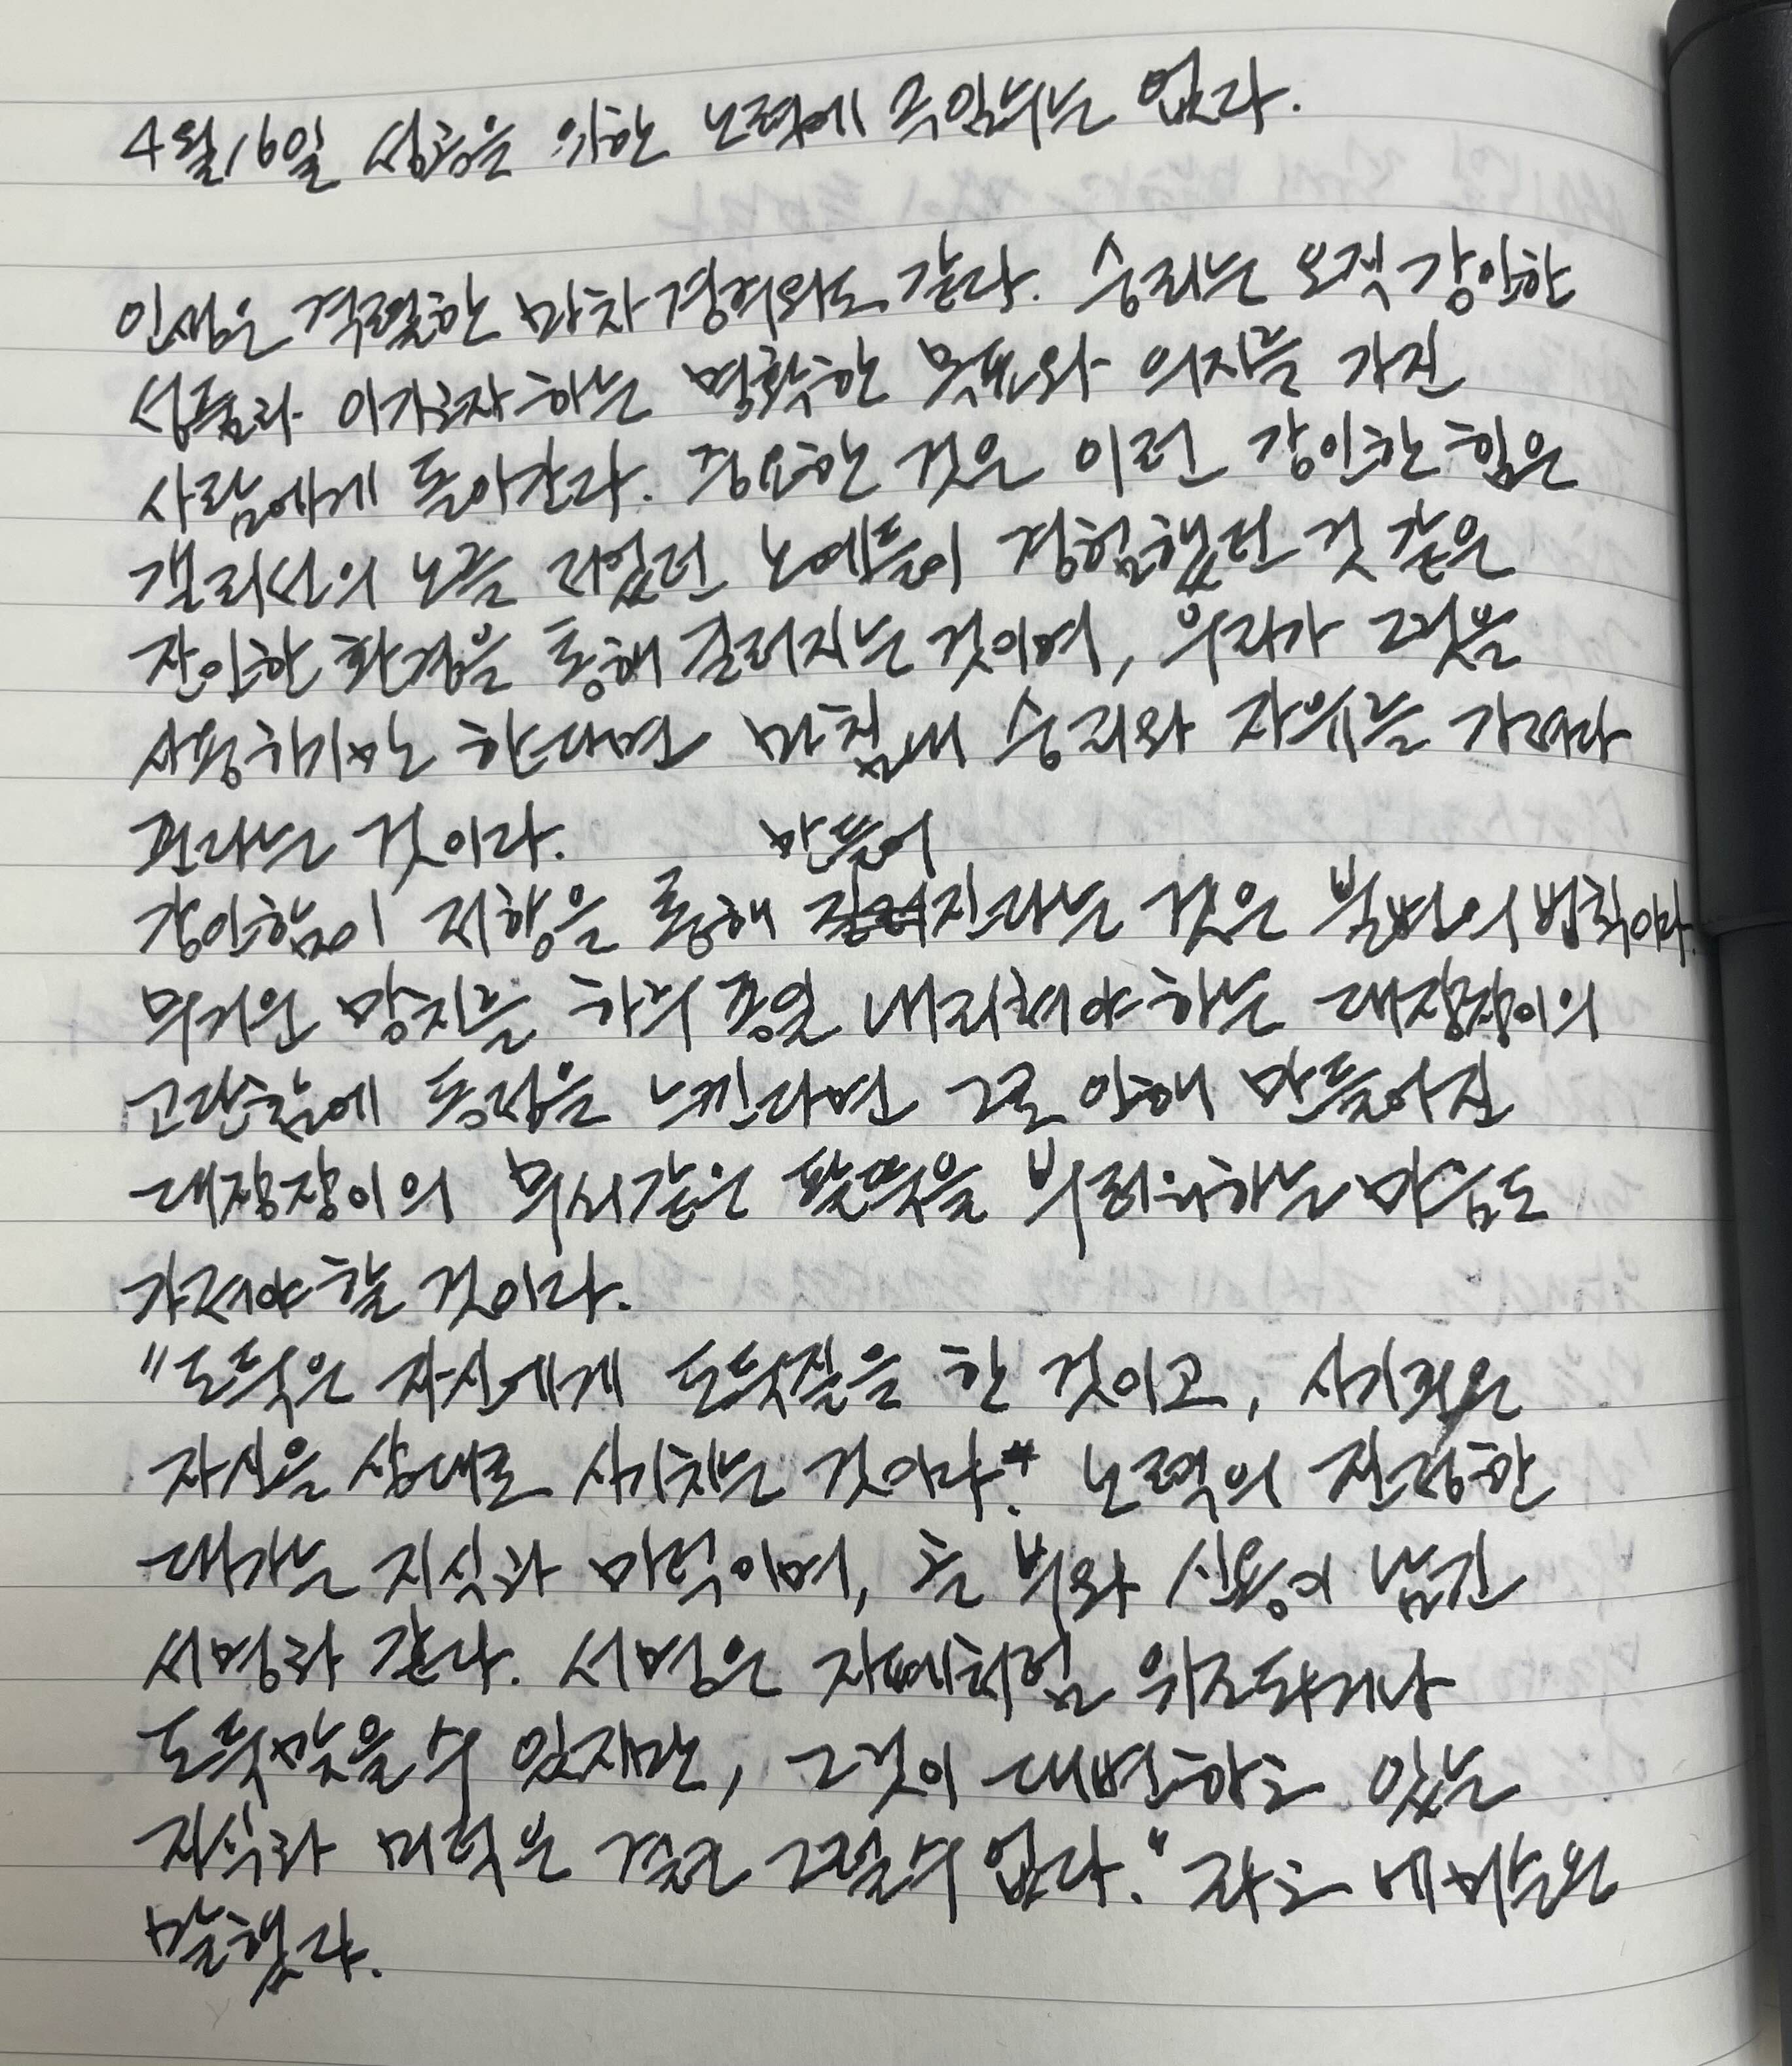 4월16일 성공을 위한 노력에 쿡일뉘는 없다.
인생은 격렬한 마차경기와도 같다. 승리는 오직 강인한
성품과 이기고자 하는 명확한 목표와 의지를 가진
사람에게 돌아간다. 중요한 것은 이런 강인한 힘은
갤리선의 노를 저었던 노예들이 경험했던 것 같은
잔인한 환경을 통해 길러지는 것이며, 우리가 그것을
사용하기만 한다면 마침내 승리와 자유를 가져다
준다는 것이다.
만들어
강인함이 저항을 통해 진다는 것은 불변의 법칙이다.
무거운 망치를 하루 종일 내리쳐야하는 대장장이의
고단함에 동정을 느낀다면 그로 인해 만들어진
대장장이의 무쇠같은 팔뚝을 부러워하는 마음도
가져야 할 것이다.
"도둑은 자신에게 도둑질을 한 것이고, 사기꾼은
자신을 상대로 사기치는 것이다. 노력의 진정한
대가는 지식과 미덕이며, 는 부와 신용이 남긴
서명과 같다. 서명은 지폐처럼 위조되거나
도둑맞을 수 있지만, 그것이 대변하고 있는
지식과 미덕은 결코 그럴수 없다." 라고 에머슨은
말했다.